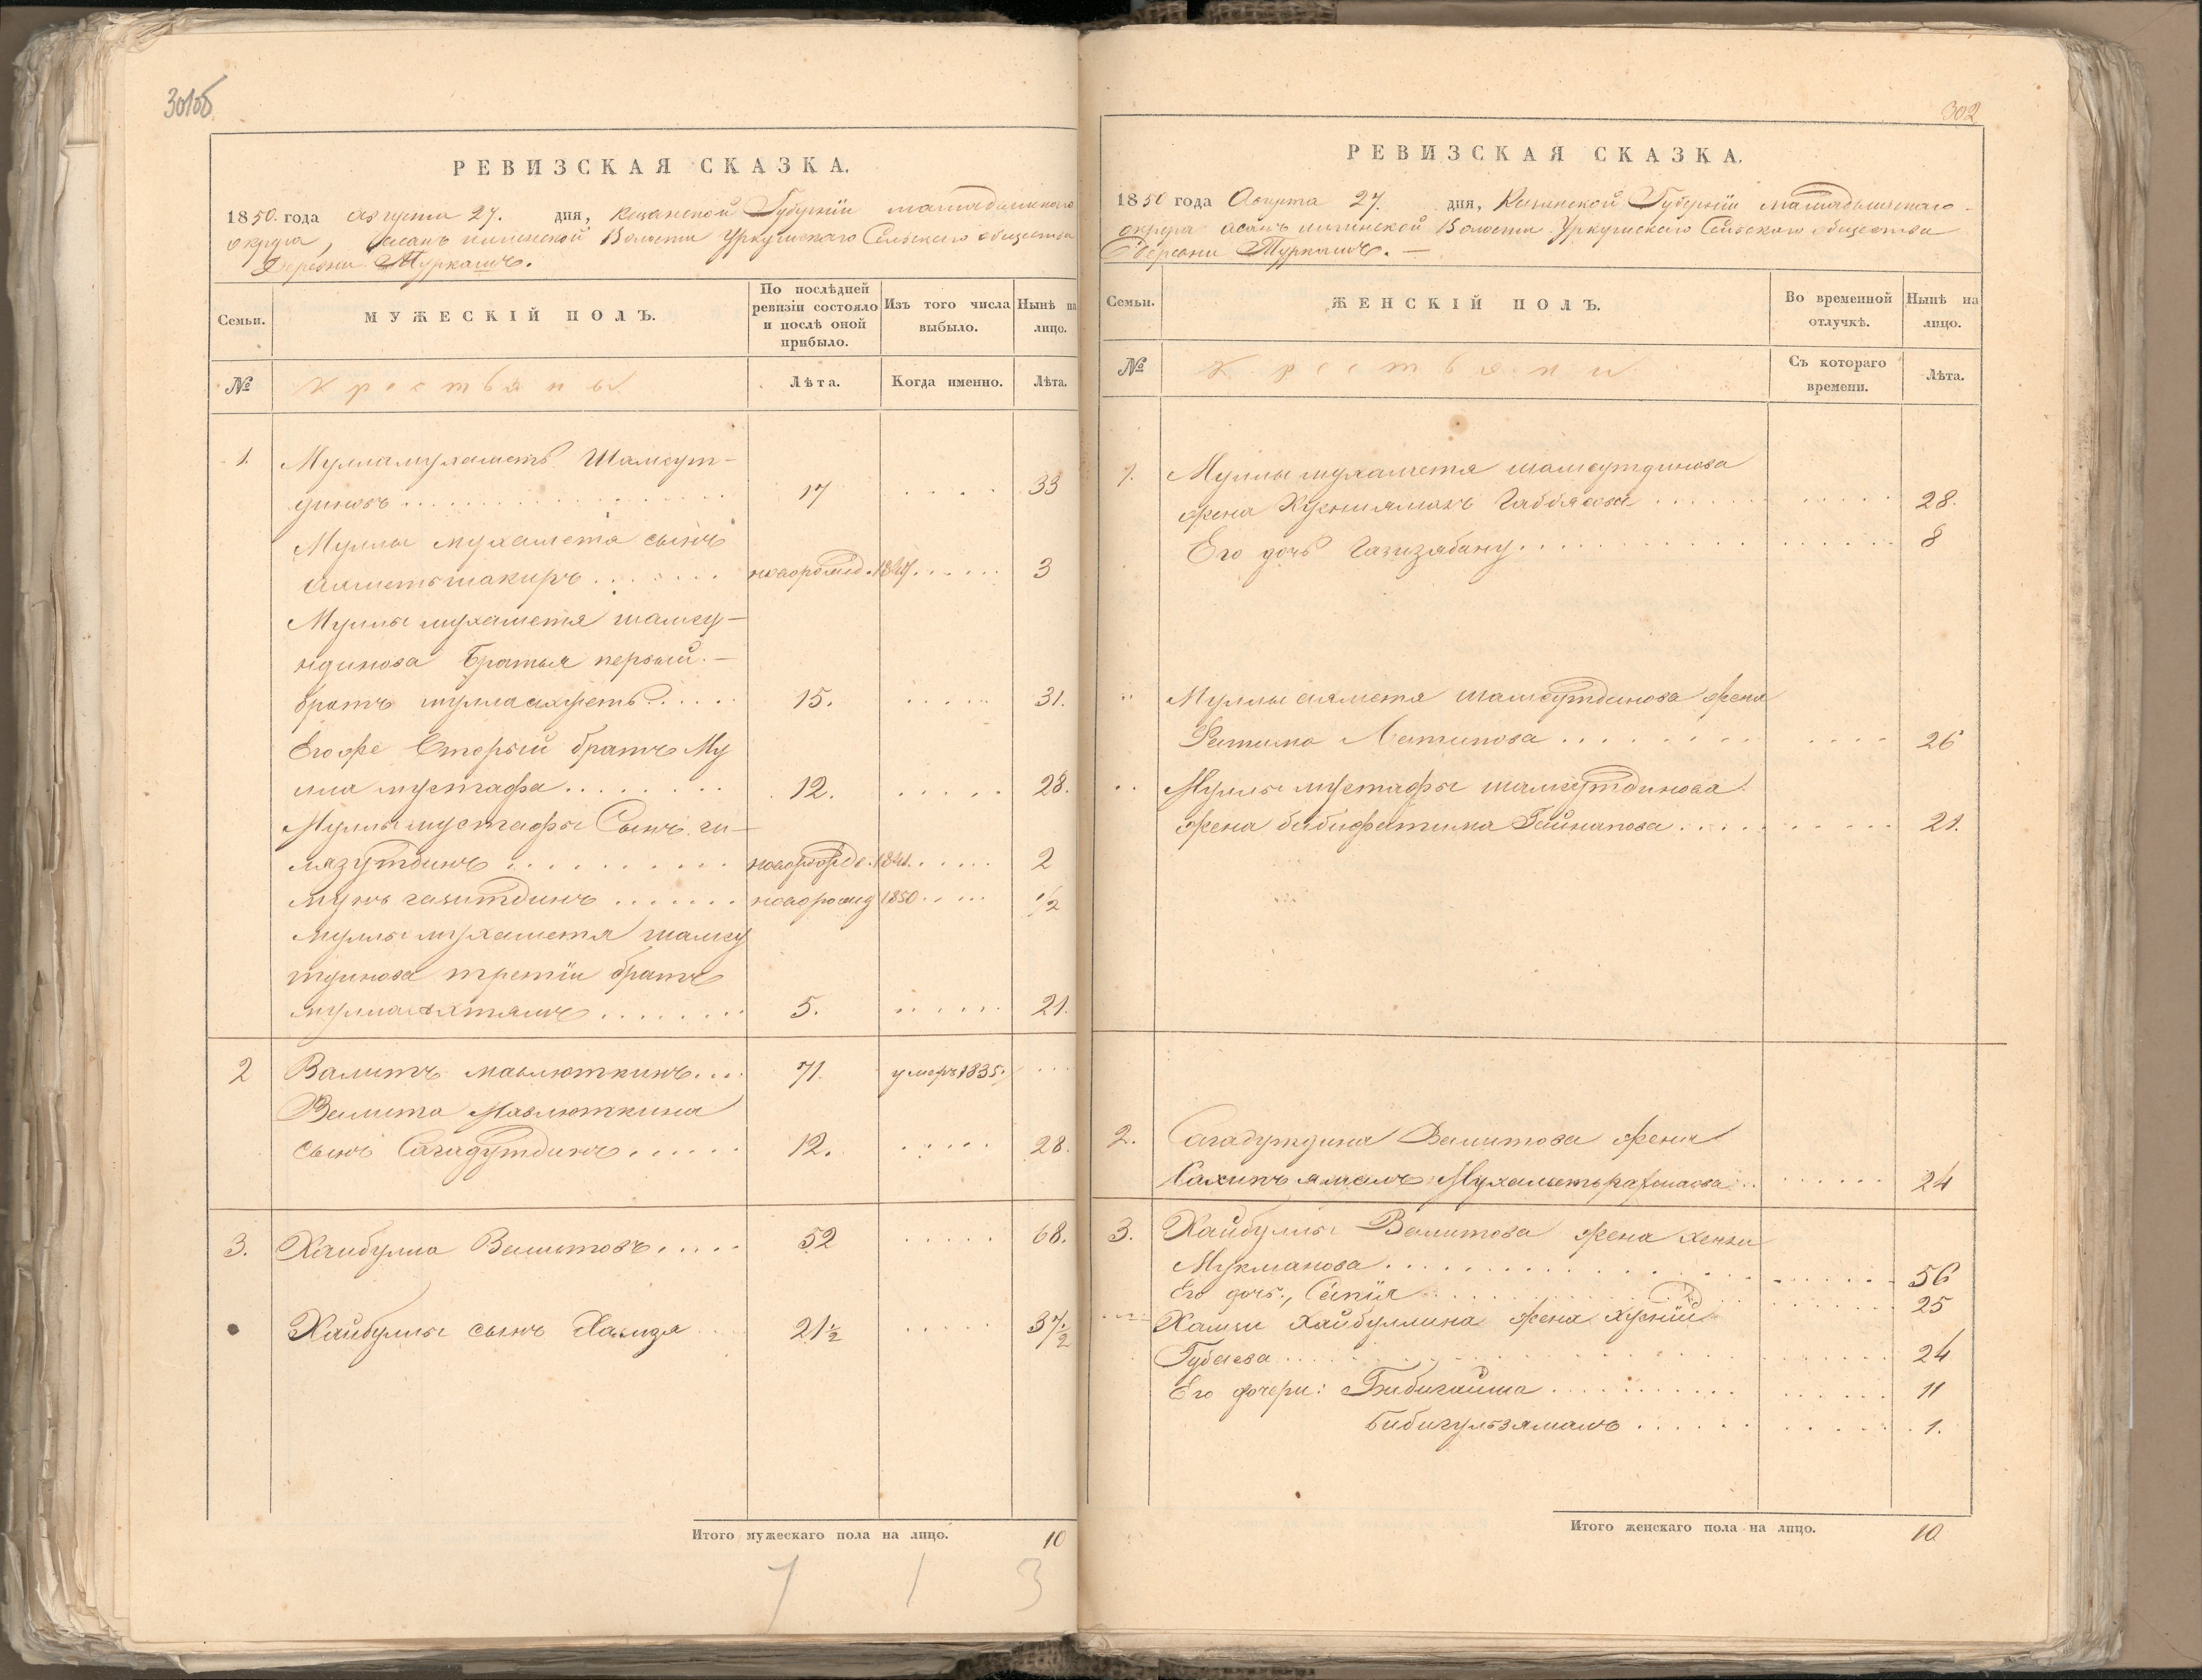 301об
РЕВИЗСКАЯ СКАЗКА.
1850. года августа 27. дня, Казанской Губерніи мамадышскаго
округа, Волости Уркушскаго Сельскаго общества
Деревни Туркашъ.
Семьи.
МУЖЕСКІЙ ПОЛЪ.
По послѣдней ревизіи состояло и послѣ оной прибыло.
Изъ того числа выбыло.
Нынѣ на лицо.
№
Крестьяны
Лѣта.
Когда именно.
Лѣта.
1. Мулламухаметъ Шамсут-
диновъ 17 33
Муллы мухамета сынъ
аяметьшакиръ новорожд. 3
Муллы мухаметя шамсу-
тдинова братья первый. —
братъ муллаахметъ 15. 31.
Егоже Вторый братъ Му
лла мустафа 12. 28.
Муллы мустафы Сынъ ги-
лязутдинъ 2
газитдинъ новорожд 1850 1/2
Муллы мухаметя шамсу
тдинова третіи братъ
мулла ахтямъ 5. 21.
2 Валитъ мавлюткинъ 71. умеръ 1835.
Валита Мавлюткина
сынъ Сагадутдинъ 12. 28.
3. Хайбулла Валитовъ 52 68.
Хайбуллы сынъ Хамза 21½ 37½
Итого мужескаго пола на лицо. 10
7 1 3
302
РЕВИЗСКАЯ СКАЗКА.
1850 года Августа 27. дня, Казанской Губерніи мамадышскаго
округа Волости Уркушскаго Сельскаго общества
Деревни Туркашъ. —
Семьи.
ЖЕНСКІЙ ПОЛЪ.
Во временной отлучкѣ.
Нынѣ на лицо.
№
Крестьяни
Съ котораго времени.
Лѣта.
1. Муллы мухаметя шамсутдинова
жена Хусниямалъ Габбясова 28.
Его дочь Газизябану 8
Муллы ахметя шамсутдинова жена
Фатима Латипова 26
Муллы мустафы шамсутдинова
жена бибифатима Гайнапова 21.
2. Сагадутдина Валитова жена
Сахипъ ямалъ 24
3. Хайбуллы Валитова жена
Мукманова 56
Его дочь, Сапія 25
Хамзи Хайбуллина жена Хуснії
Губаева 24
Его дочери: Бибигайша 11
Бибигульзямалъ 1.
Итого женскаго пола на лицо. 10